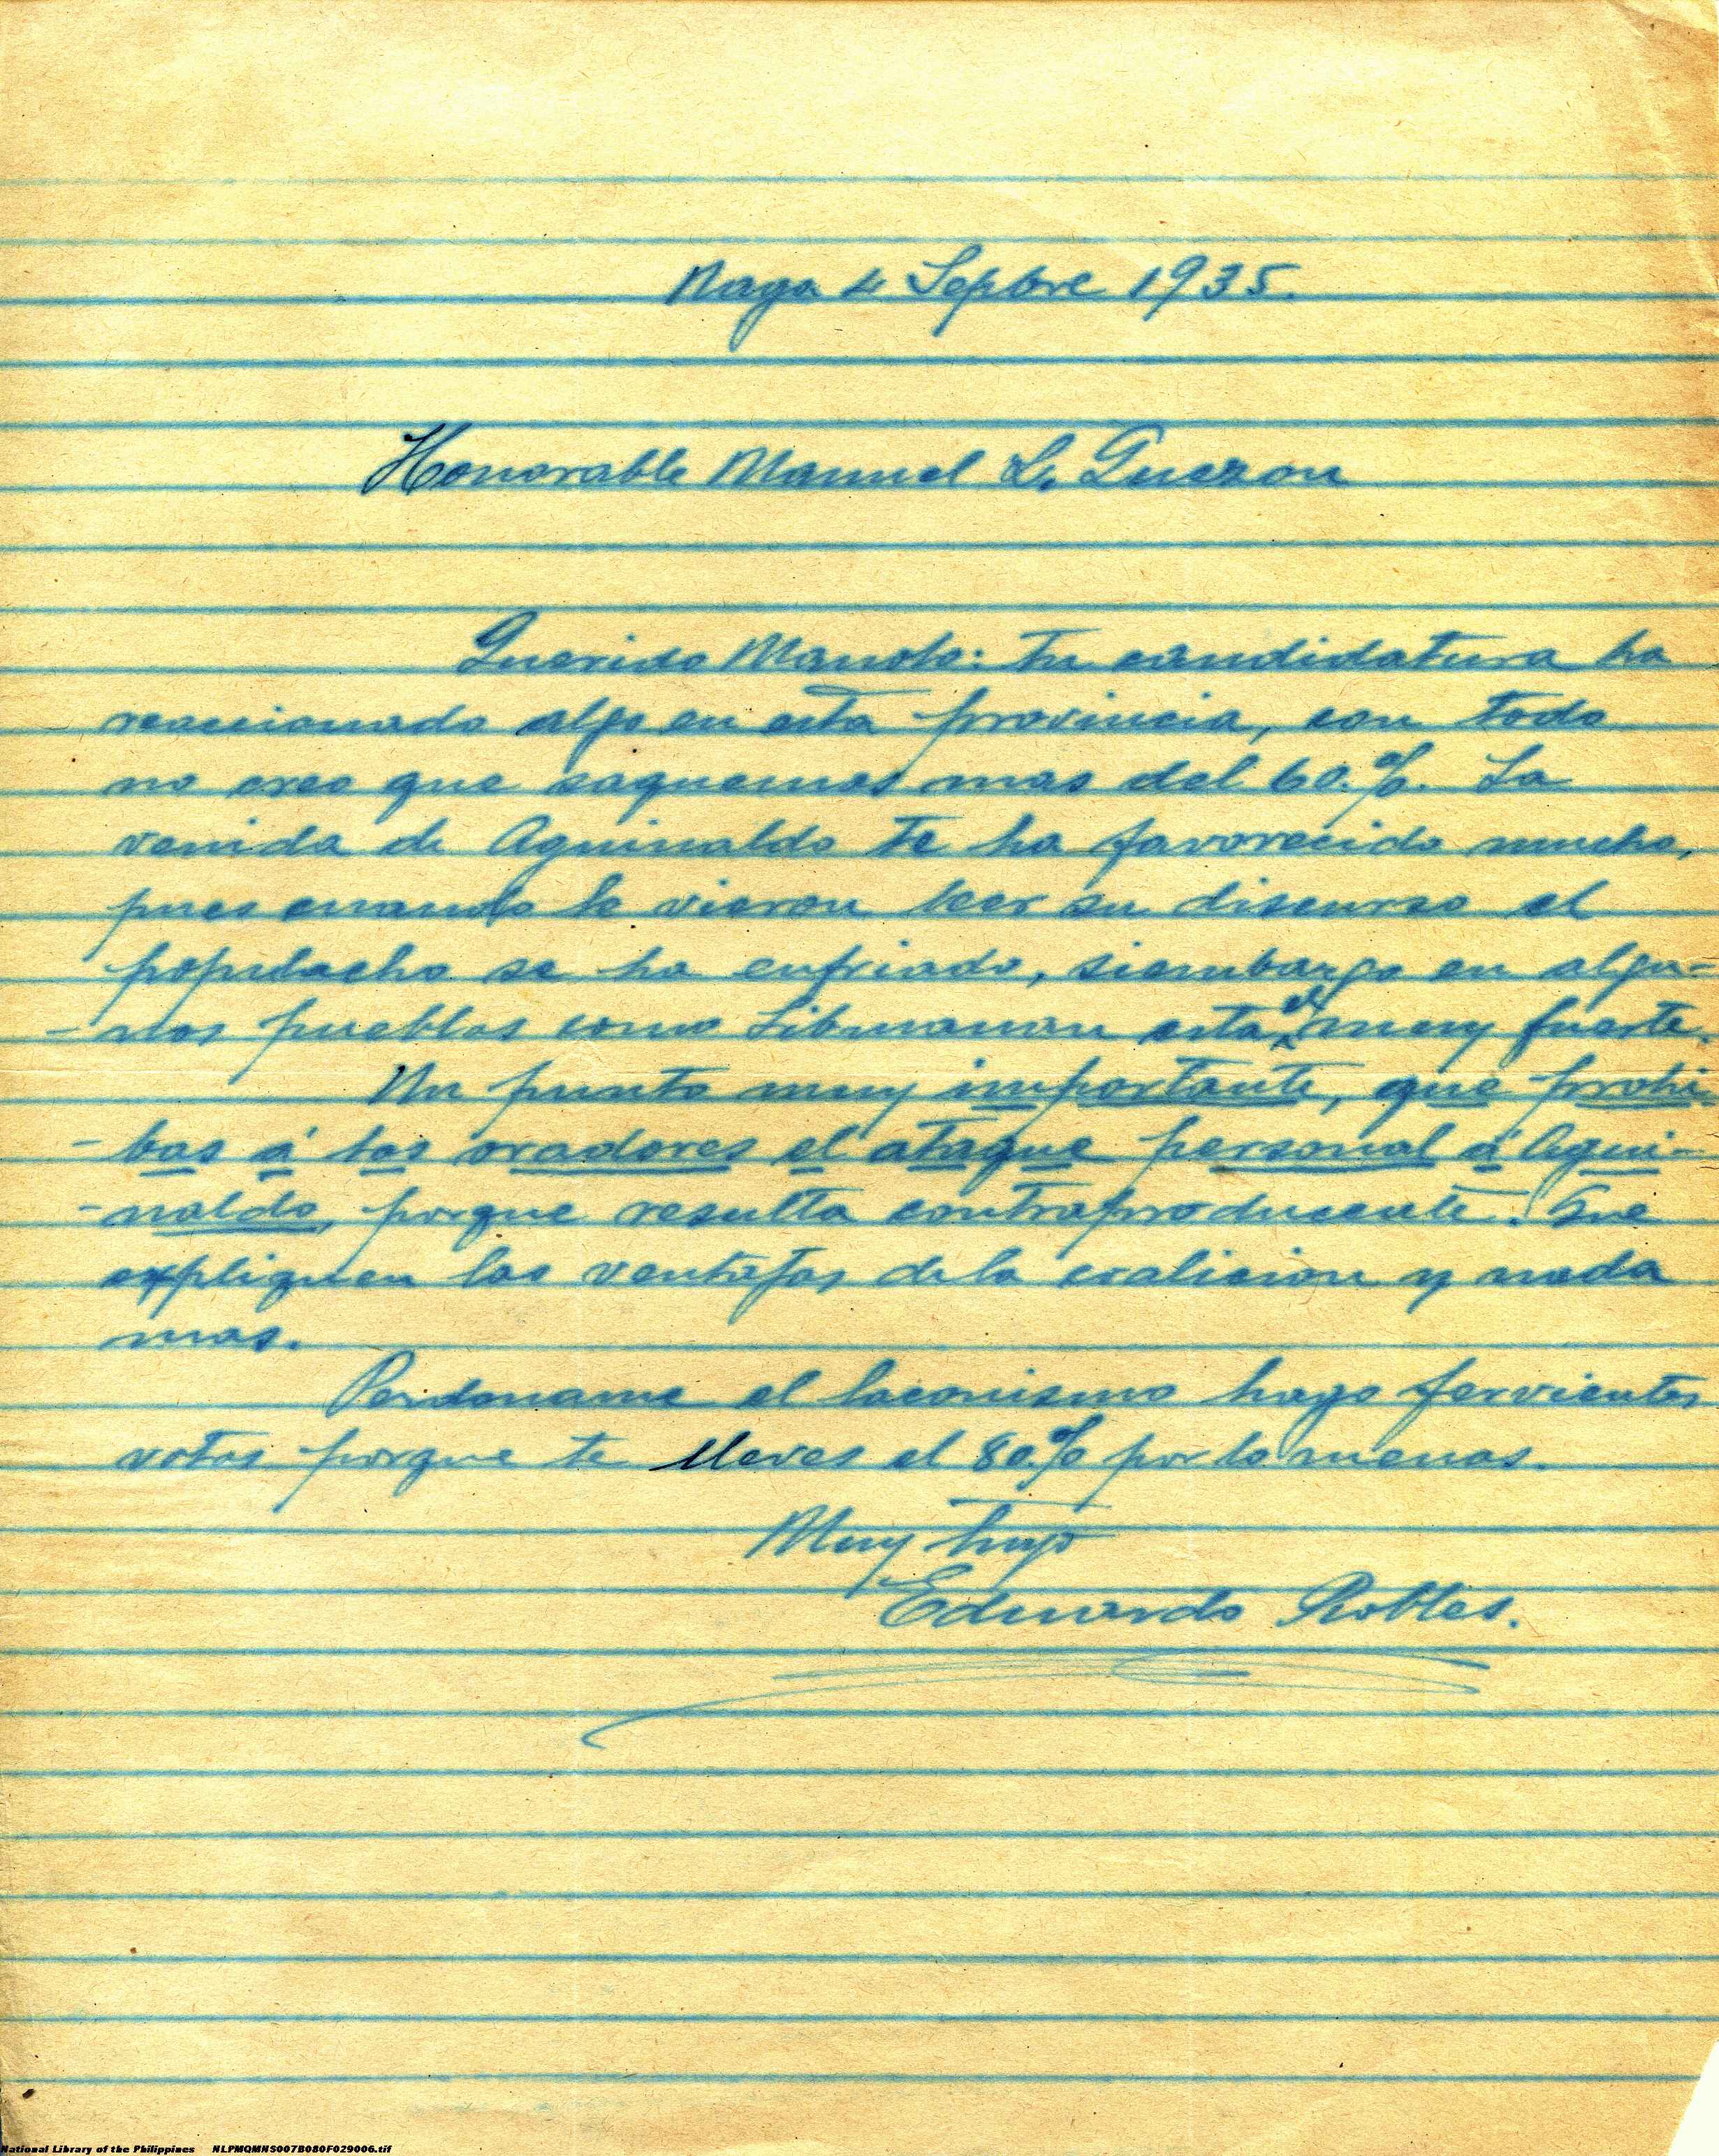 Naga 4 Sepbre 1935.
Honorable Manuel L. Quezon
Querido Manolo: Tu candidatura ha
reaccionado algo en esta provincia, con todo
no creo que saquemos mas del 60.%. La
venida de Aguinaldo te ha favorecido mucho,
pues cuando le vieron leer su discurso el
populacho se ha enfriado, siembargo en algu-
-nos pueblos como Libmanan esta el muy fuerte.
Un punto muy importante, que prohi-
-bas á los oradores el ataque personal á Agui-
-naldo, porque resulta contraproducente. Que
expliquen las ventajas de la coalicion y nada
mas.
Perdoname el laconismo hago fervientes
votos porque te lleves el 80.% por lo menos.
Muy tuyo
Eduardo Robles.
National Library of the Philippines NLPMQMNS007B080F029006.tif